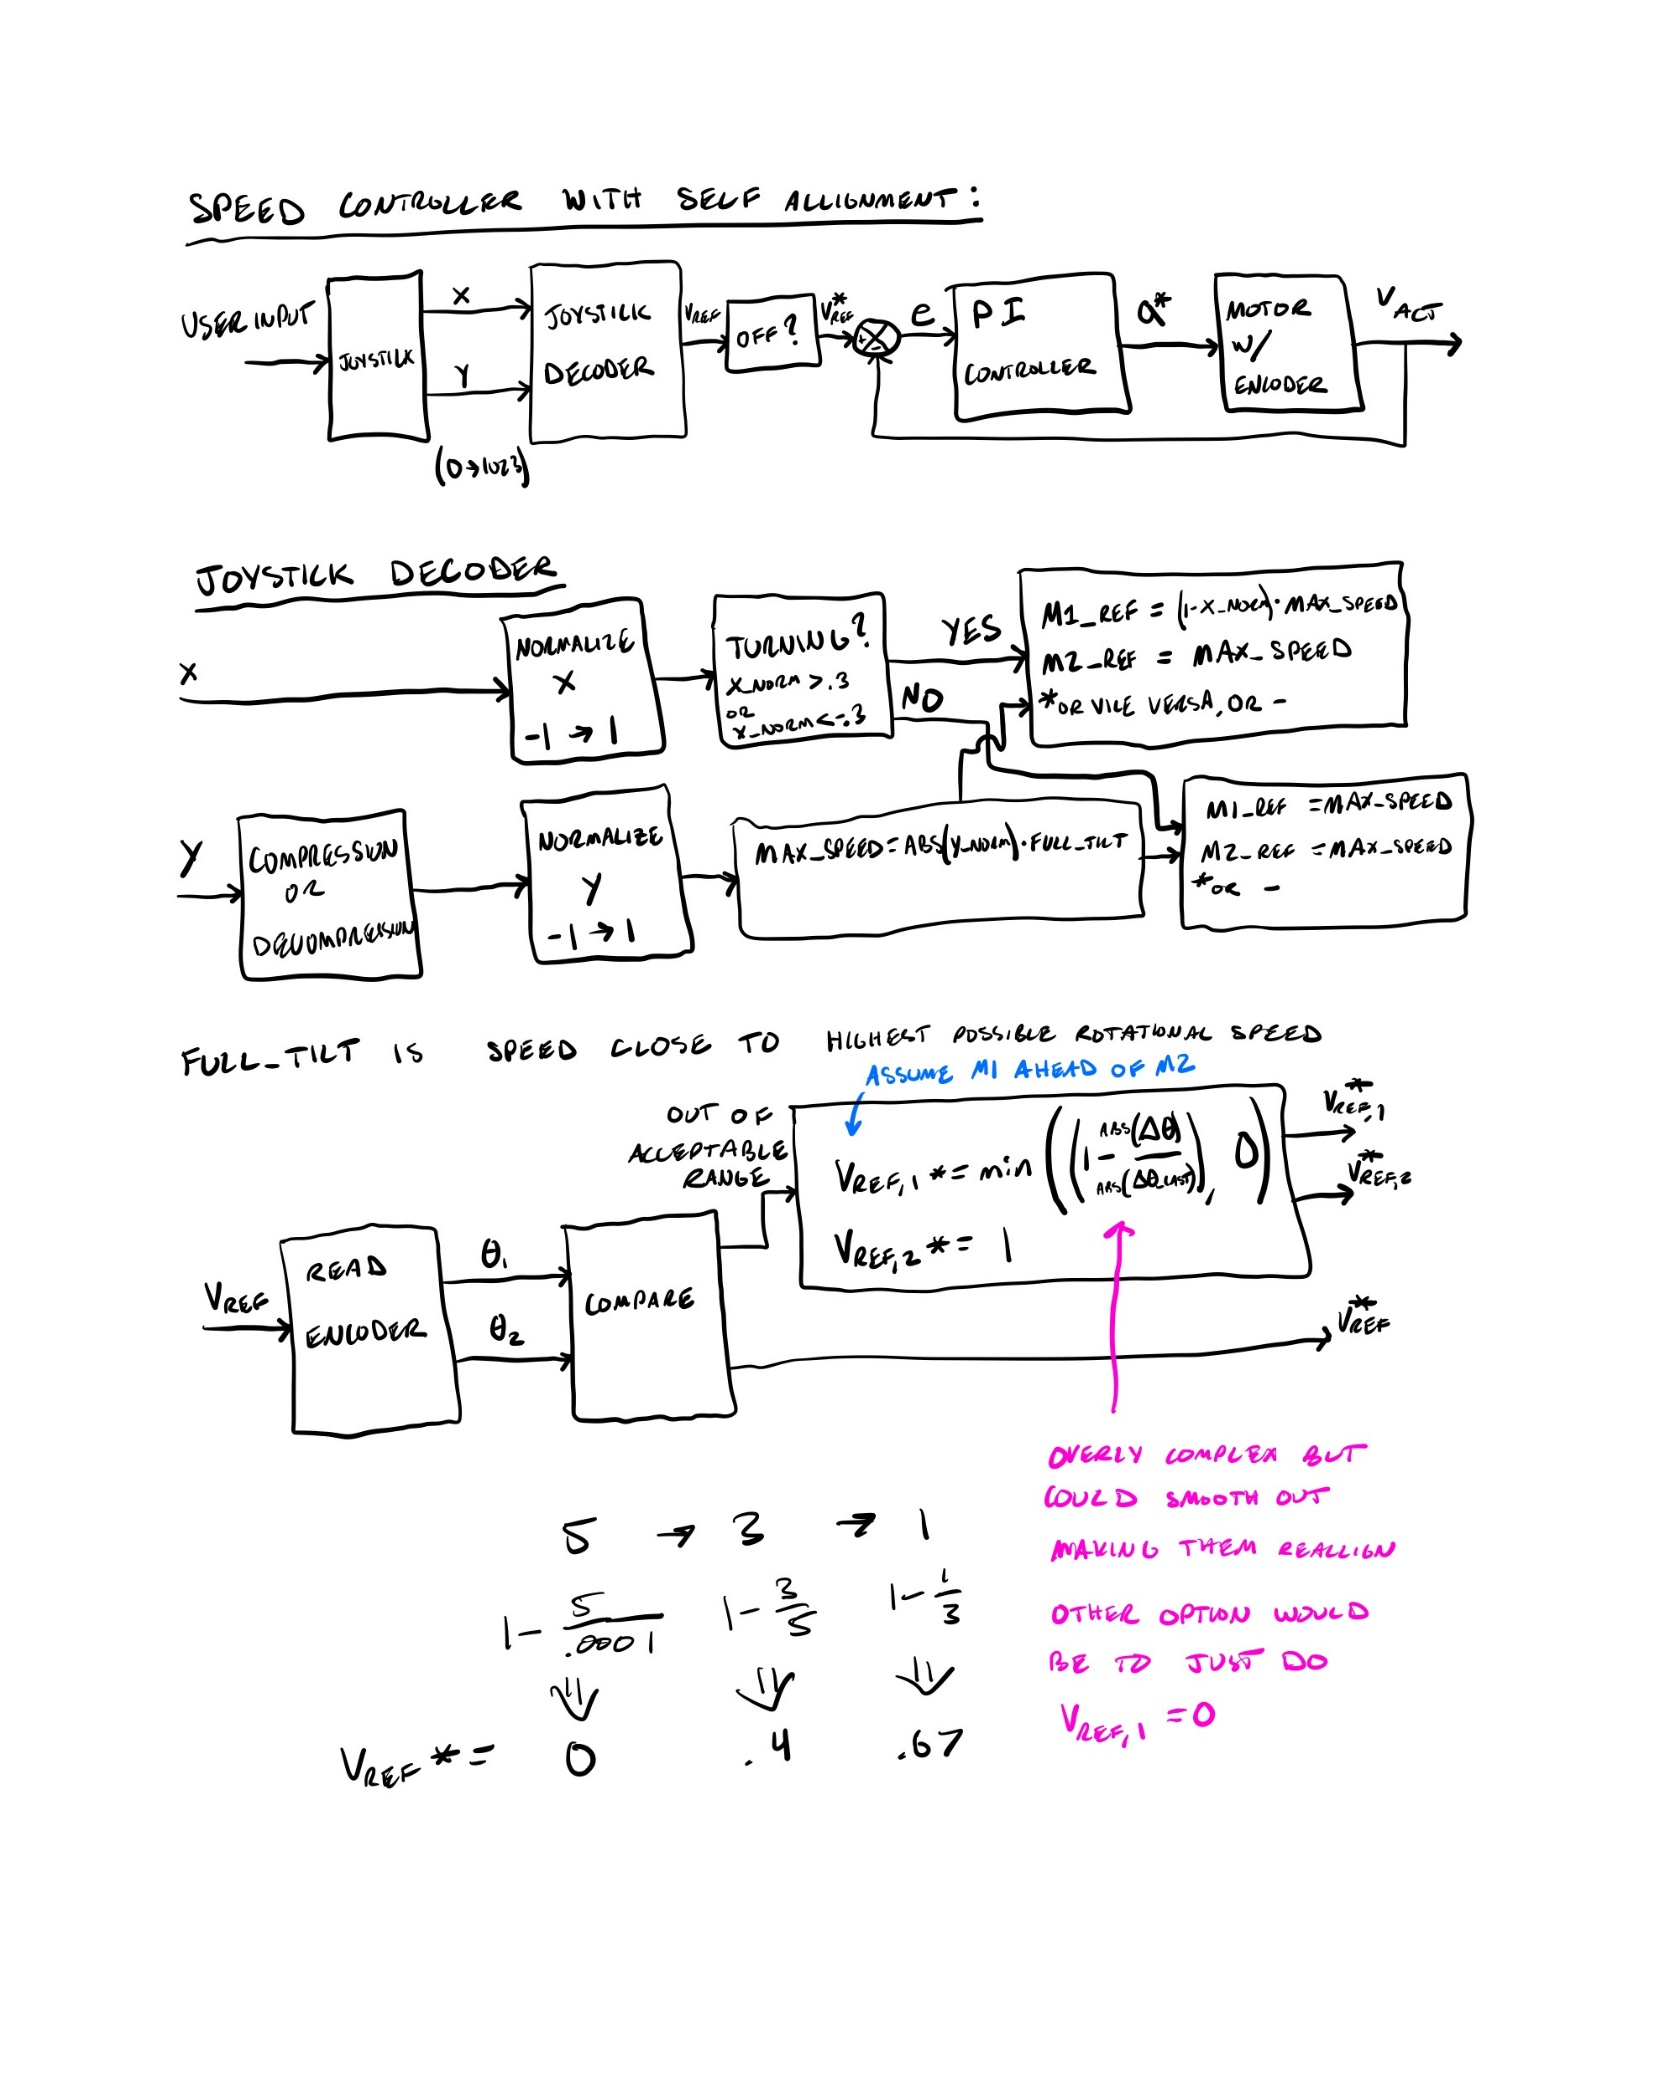 SPEED CONTROLLER WITH SELF ALLIGNMENT:
USER INPUT
JOYSTICK
X
Y
(0→1023)
JOYSTICK
DECODER
VREF
OFF?
V*REF
+
-
e
PI
CONTROLLER
a*
MOTOR
W/
ENCODER
VACT
JOYSTICK DECODER
X
NORMALIZE
X
-1 → 1
TURNING?
X_NORM > .3
OR
X_NORM < -.3
YES
NO
M1_REF = (1-X_NORM)·MAX_SPEED
M2_REF = MAX_SPEED
*OR VICE VERSA, OR -
Y
COMPRESSION
OR
DECOMPRESSION
NORMALIZE
Y
-1 → 1
MAX_SPEED = ABS(Y_NORM)·FULL_TILT
M1_REF = MAX_SPEED
M2_REF = MAX_SPEED
*OR -
FULL_TILT IS SPEED CLOSE TO HIGHEST POSSIBLE ROTATIONAL SPEED
ASSUME M1 AHEAD OF M2
OUT OF
ACCEPTABLE
RANGE
VREF,1* = min((1 - ABS(Δθ)/ABS(Δθ_LAST)), 0)
VREF,2* = 1
V*REF,1
V*REF,2
VREF
READ
ENCODER
θ1
θ2
COMPARE
V*REF
OVERLY COMPLEX BUT
COULD SMOOTH OUT
MAKING THEM REALLIGN
OTHER OPTION WOULD
BE TO JUST DO
VREF,1 = 0
5 → 3 → 1
1 - 5/.0001 1 - 3/5 1 - 1/3
VREF* = 0 .4 .67